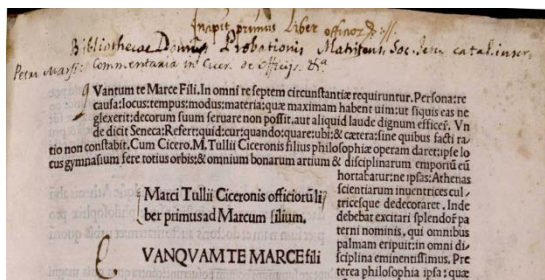 Incipit primus Liber officiorum
Bibliothecae Domus Probationis Matritens. Soc. Iesu catal. inscr.
Petri Marsi Commentaria in Cicer. de Officijs. &a
QVantum te Marce Fili. In omni re septem circunstantiæ requiruntur. Persona: re
causa: locus: tempus: modus: materia: quæ maximam habent uim: ut siquis eas ne
glexerit: decorum suum seruare non possit, aut aliquid laude dignum efficeř. Vn
de dicit Seneca: Refert: quid: cur: quando: quare: ubi: & cætera: sine quibus facti ra
tio non constabit. Cum Cicero. M. Tullii Ciceronis filius philosophiæ operam daret: ipse lo
cus gymnasium fere totius orbis: & omnium bonarum artium & disciplinarum emporiũ eũ
hortabatur: ne ipsas: Athenas
scientiarum inuentrices cul-
tricesque dedecoraret. Inde
debebat excitari splendoř pa
terni nominis, qui omnibus
palmam eripuit: in omni di-
sciplina eminentissimus. Præ
terea philosophia ipsa: quæ
Marci Tullii Ciceronis officiorũ li
ber primus ad Marcum filium.
VANQVAM TE MARCE fili